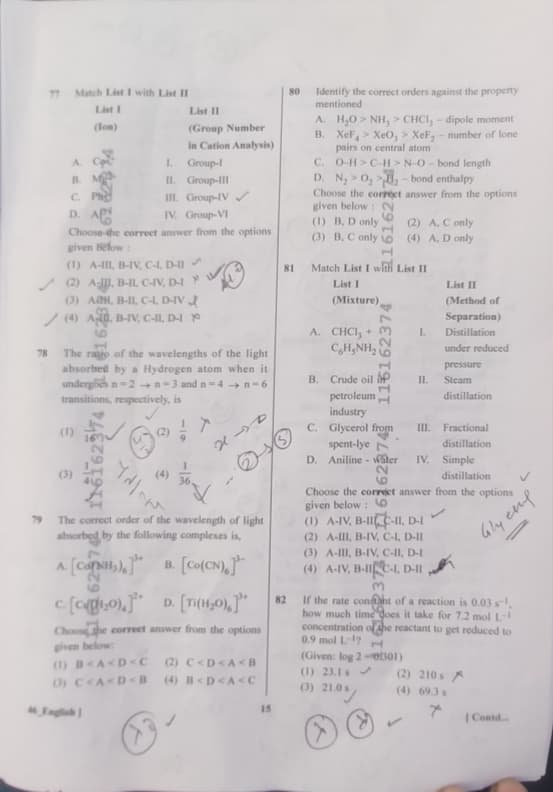 77 Match List I with List II
List I List II
(Ion) (Group Number
in Cation Analysis)
A. I. Group-I
B. II. Group-III
C. III. Group-IV
D. IV. Group-VI
Choose the correct answer from the options
given below :
(1) A-III, B-IV, C-I, D-II
(2) B-II, C-IV, D-I
(3) B-II, C-I, D-IV
(4) B-IV, C-II, D-I
78 The ratio of the wavelengths of the light
absorbed by a Hydrogen atom when it
undergoes n = 2 → n = 3 and n = 4 → n = 6
transitions, respectively, is
(1) (2) 1/9
(3) (4) 1/36
79 The correct order of the wavelength of light
absorbed by the following complexes is,
A. [Co(NH₃)₆]³⁺ B. [Co(CN)₆]³⁻
C. [Cu(H₂O)₄]²⁺ D. [Ti(H₂O)₆]³⁺
Choose the correct answer from the options
given below:
(1) B < A < D < C (2) C < D < A < B
(3) C < A < D < B (4) B < D < A < C
46_English ]
15
80 Identify the correct orders against the property
mentioned
A. H₂O > NH₃ > CHCl₃ – dipole moment
B. XeF₄ > XeO₃ > XeF₂ – number of lone
pairs on central atom
C. O–H > C–H > N–O – bond length
D. N₂ > O₂ > H₂ – bond enthalpy
Choose the correct answer from the options
given below :
(1) B, D only (2) A, C only
(3) B, C only (4) A, D only
81 Match List I with List II
List I List II
(Mixture) (Method of
Separation)
A. CHCl₃ + I. Distillation
C₆H₅NH₂ under reduced
pressure
B. Crude oil in II. Steam
petroleum distillation
industry
C. Glycerol from III. Fractional
spent-lye distillation
D. Aniline - water IV. Simple
distillation
Choose the correct answer from the options
given below :
(1) A-IV, B-III, C-II, D-I
(2) A-III, B-IV, C-I, D-II
(3) A-III, B-IV, C-II, D-I
(4) A-IV, B-III, C-I, D-II
82 If the rate constant of a reaction is 0.03 s⁻¹,
how much time does it take for 7.2 mol L⁻¹
concentration of the reactant to get reduced to
0.9 mol L⁻¹?
(Given: log 2 = 0.301)
(1) 23.1 s (2) 210 s
(3) 21.0 s (4) 69.3 s
[ Contd...
116162374